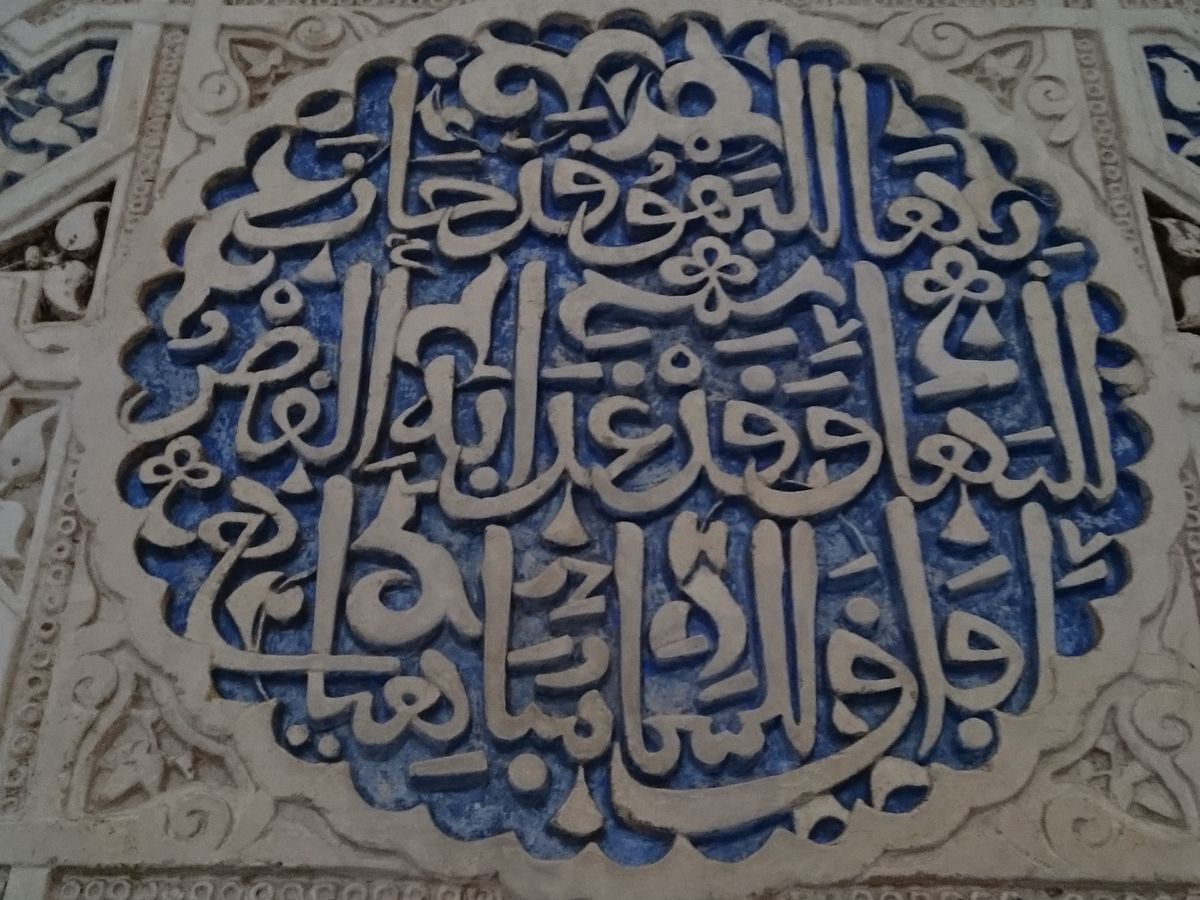 بها البهو قد حاز
البهاء وقد غدا به القصر
آفاق السماء مباهيا